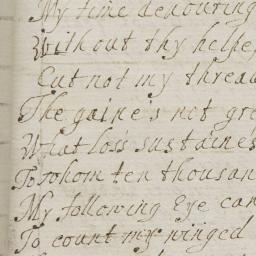 My time devouring
Without thy helpe,
Cut not my thread
The gaine's not gre
What loss sustaine's
To whom ten thousan
My following Eye can
To count my winged